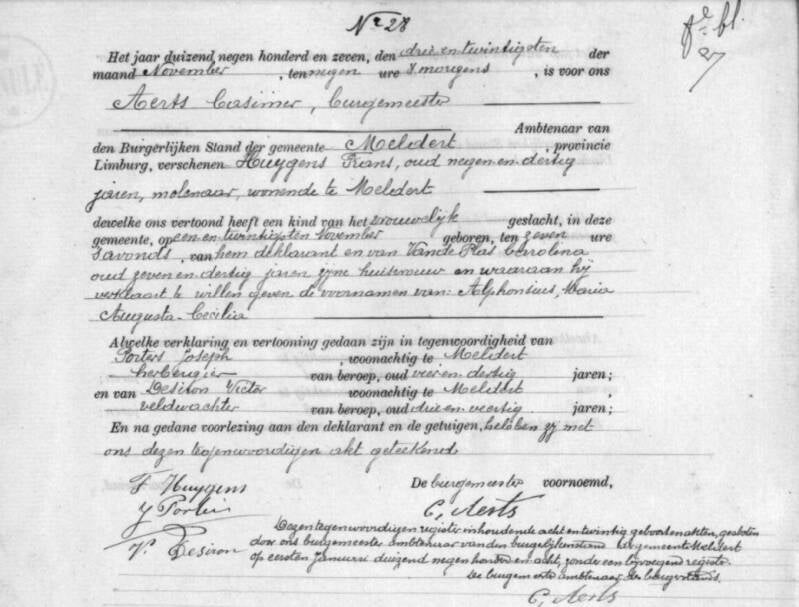 Nr 28
fe bl.
27
Het jaar duizend negen honderd en zeven, den drie en twintigsten der
maand November, ten negen ure 's morgens, is voor ons
Aerts Casimer, burgemeester
Ambtenaar van
den Burgerlijken Stand der gemeente Meldert, provincie
Limburg, verschenen Huygens Frans, oud negen en dertig
jaren, molenaar, wonende te Meldert
dewelke ons vertoond heeft een kind van het vrouwelijk geslacht, in deze
gemeente, op een en twintigsten November geboren, ten zeven ure
's avonds, van hem deklarant en van Vande Plas Carolina
oud zeven en dertig jaren zijne huisvrouw en waaraan hij
verklaart te willen geven de voornamen van: Alphonsius, Maria
Augusta Cecilia
Alwelke verklaring en vertooning gedaan zijn in tegenwoordigheid van
Porters Joseph, woonachtig te Meldert
herbergier van beroep, oud vier en dertig jaren;
en van Desiron Victor woonachtig te Meldert,
veldwachter van beroep, oud drie en veertig jaren;
En na gedane voorlezing aan den deklarant en de getuigen, hebben zij met
ons dezen tegenwoordigen akt geteekend.
F Huygens
De burgemeester voornoemd,
J
C, Aerts
V. Desiron
Dezen tegenwoordigen register inhoudende acht en twintig geboortenakten, gesloten
door ons burgemeester ambtenaar van den burgelijkenstand der gemeente Meldert
op eersten Januari duizend negen honderd en acht, zonder een bijvoegend register.
De burgemeester ambtenaar des burgerstands.
C, Aerts